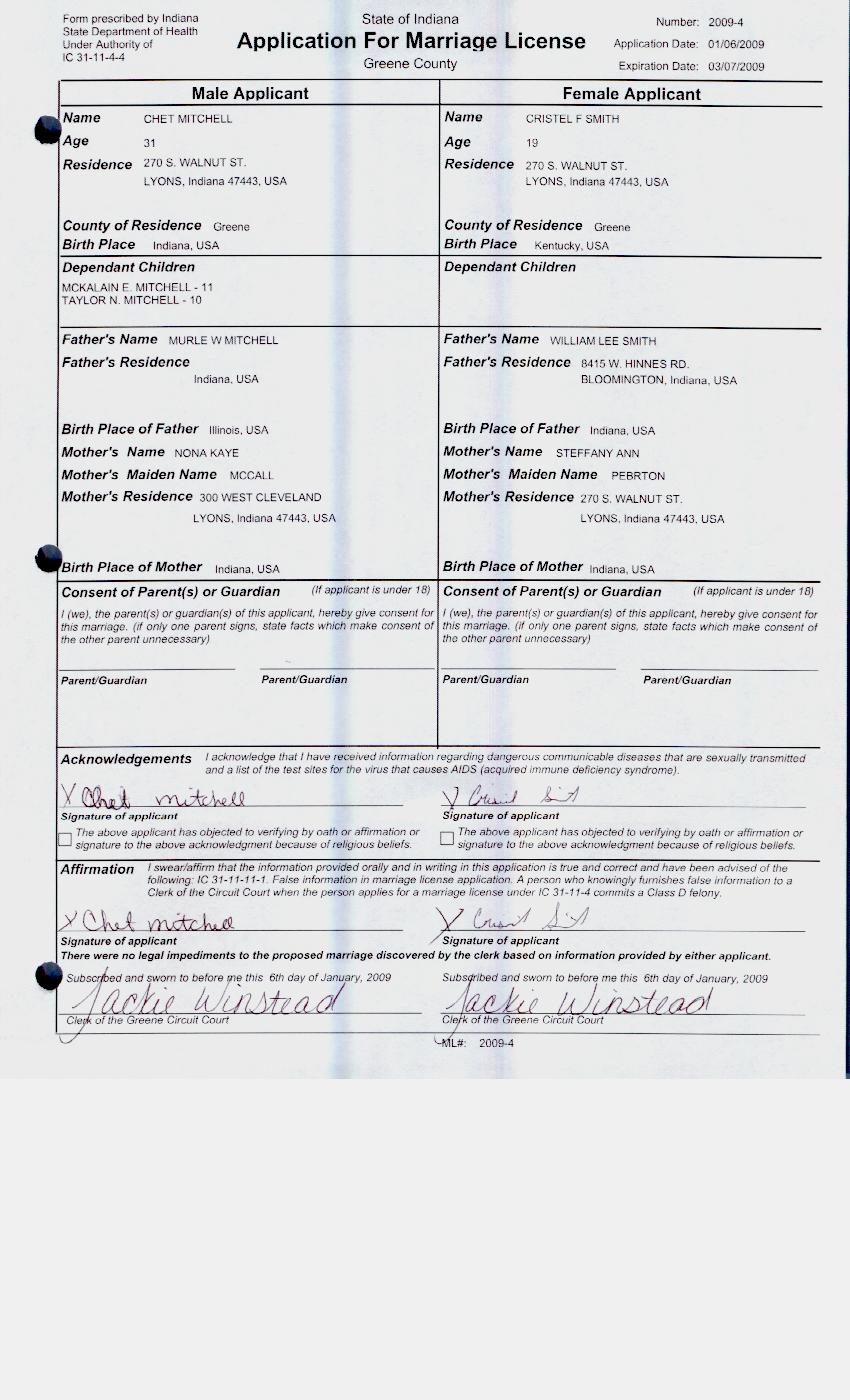 Form prescribed by Indiana
State Department of Health
Under Authority of
IC 31-11-4-4
State of Indiana
Application For Marriage License
Greene County
Number: 2009-4
Application Date: 01/06/2009
Expiration Date: 03/07/2009
Male Applicant
Name CHET MITCHELL
Age 31
Residence 270 S. WALNUT ST.
LYONS, Indiana 47443, USA
County of Residence Greene
Birth Place Indiana, USA
Dependant Children
MCKALAIN E. MITCHELL - 11
TAYLOR N. MITCHELL - 10
Father's Name MURLE W MITCHELL
Father's Residence
Indiana, USA
Birth Place of Father Illinois, USA
Mother's Name NONA KAYE
Mother's Maiden Name MCCALL
Mother's Residence 300 WEST CLEVELAND
LYONS, Indiana 47443, USA
Birth Place of Mother Indiana, USA
Consent of Parent(s) or Guardian (If applicant is under 18)
I (we), the parent(s) or guardian(s) of this applicant, hereby give consent for
this marriage. (if only one parent signs, state facts which make consent of
the other parent unnecessary)
Parent/Guardian Parent/Guardian
Female Applicant
Name CRISTEL F SMITH
Age 19
Residence 270 S. WALNUT ST.
LYONS, Indiana 47443, USA
County of Residence Greene
Birth Place Kentucky, USA
Dependant Children
Father's Name WILLIAM LEE SMITH
Father's Residence 8415 W. HINNES RD.
BLOOMINGTON, Indiana, USA
Birth Place of Father Indiana, USA
Mother's Name STEFFANY ANN
Mother's Maiden Name PEBRTON
Mother's Residence 270 S. WALNUT ST.
LYONS, Indiana 47443, USA
Birth Place of Mother Indiana, USA
Consent of Parent(s) or Guardian (If applicant is under 18)
I (we), the parent(s) or guardian(s) of this applicant, hereby give consent for
this marriage. (if only one parent signs, state facts which make consent of
the other parent unnecessary)
Parent/Guardian Parent/Guardian
Acknowledgements I acknowledge that I have received information regarding dangerous communicable diseases that are sexually transmitted
and a list of the test sites for the virus that causes AIDS (acquired immune deficiency syndrome).
X Chet Mitchell
Signature of applicant
The above applicant has objected to verifying by oath or affirmation or
signature to the above acknowledgment because of religious beliefs.
X
Signature of applicant
The above applicant has objected to verifying by oath or affirmation or
signature to the above acknowledgment because of religious beliefs.
Affirmation I swear/affirm that the information provided orally and in writing in this application is true and correct and have been advised of the
following: IC 31-11-11-1. False information in marriage license application. A person who knowingly furnishes false information to a
Clerk of the Circuit Court when the person applies for a marriage license under IC 31-11-4 commits a Class D felony.
X Chet Mitchell
Signature of applicant
X
Signature of applicant
There were no legal impediments to the proposed marriage discovered by the clerk based on information provided by either applicant.
Subscribed and sworn to before me this 6th day of January, 2009
Jackie Winstead
Clerk of the Greene Circuit Court
Subscribed and sworn to before me this 6th day of January, 2009
Jackie Winstead
Clerk of the Greene Circuit Court
ML#: 2009-4